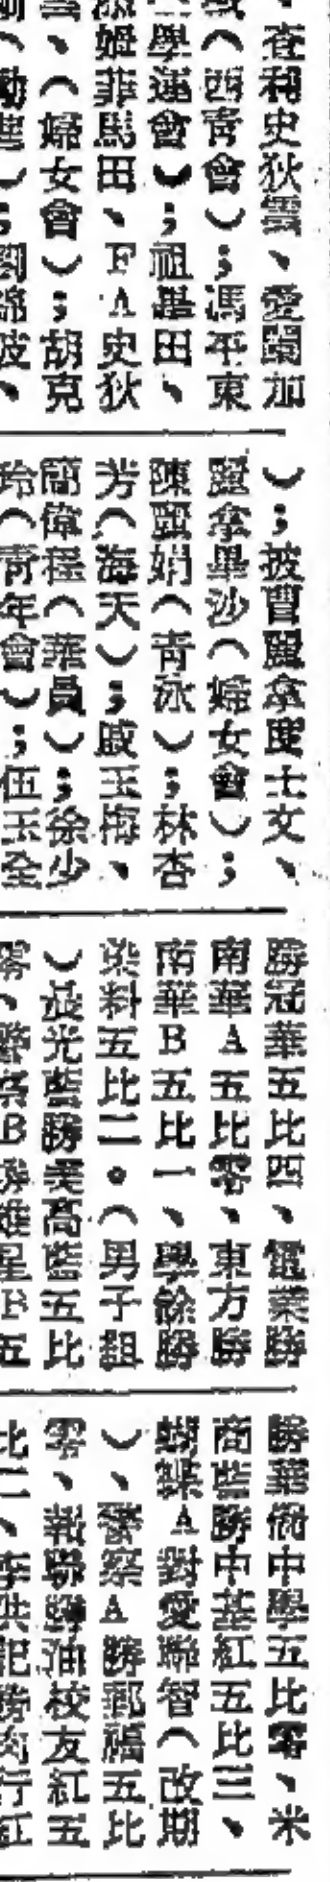 、查利史狄雲、愛蘭加
（西青會）；馮平東
學運會）；祖畢田、
姆菲馬田、FA史狄
、（婦女會）；胡克
）；披曹麗拿度士文、
麗拿畢沙（婦女會）；
陳麗娟（青泳）；林杏
芳（海天）；戚玉梅、
簡偉程（華員）；徐少
玲（青年會）；伍玉全
勝冠華五比四、電業勝
南華A五比零、東方勝
南華B五比一、學餘勝
染料五比二。（男子組
）晨光藍勝美高藍五比
零、警察B勝雄星B五
勝華僑中學五比零、米
商藍勝中基紅五比三、
蝴蝶A對愛聯智（改期
）、警察A勝郵福五比
零、報聯勝油校友紅五
比二、